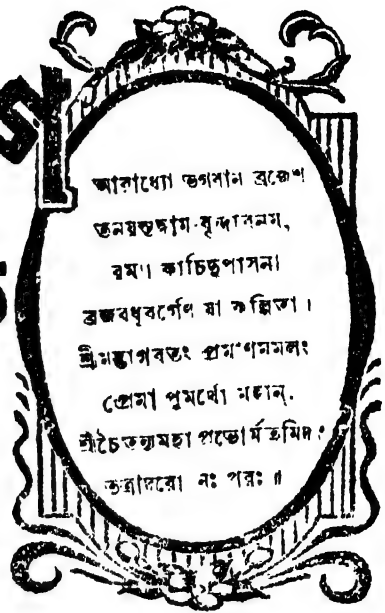 আরাধ্যো ভগবান ব্রজেশ
তনয়স্তদ্ধাম-বৃন্দাবনম,
রম্যা কাচিদুপাসনা
ব্রজবধূবর্গেণ যা কল্পিতা।
শ্রীমদ্ভাগবতং প্রমাণমমলং
প্রেমা পুমর্থো মহান্.
শ্রীচৈতন্যমহা প্রভোর্মতমিদং
তত্রাদরো নঃ পরঃ॥